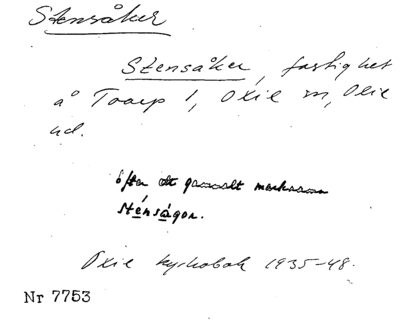 Stensåker
Stensåker, fastighet
å Toarp 1, Oxie sn, Oxie
hd.
efter ett gammalt marknamn
sténsågor.
Oxie kyrkobok 1935-48.
Nr 7753